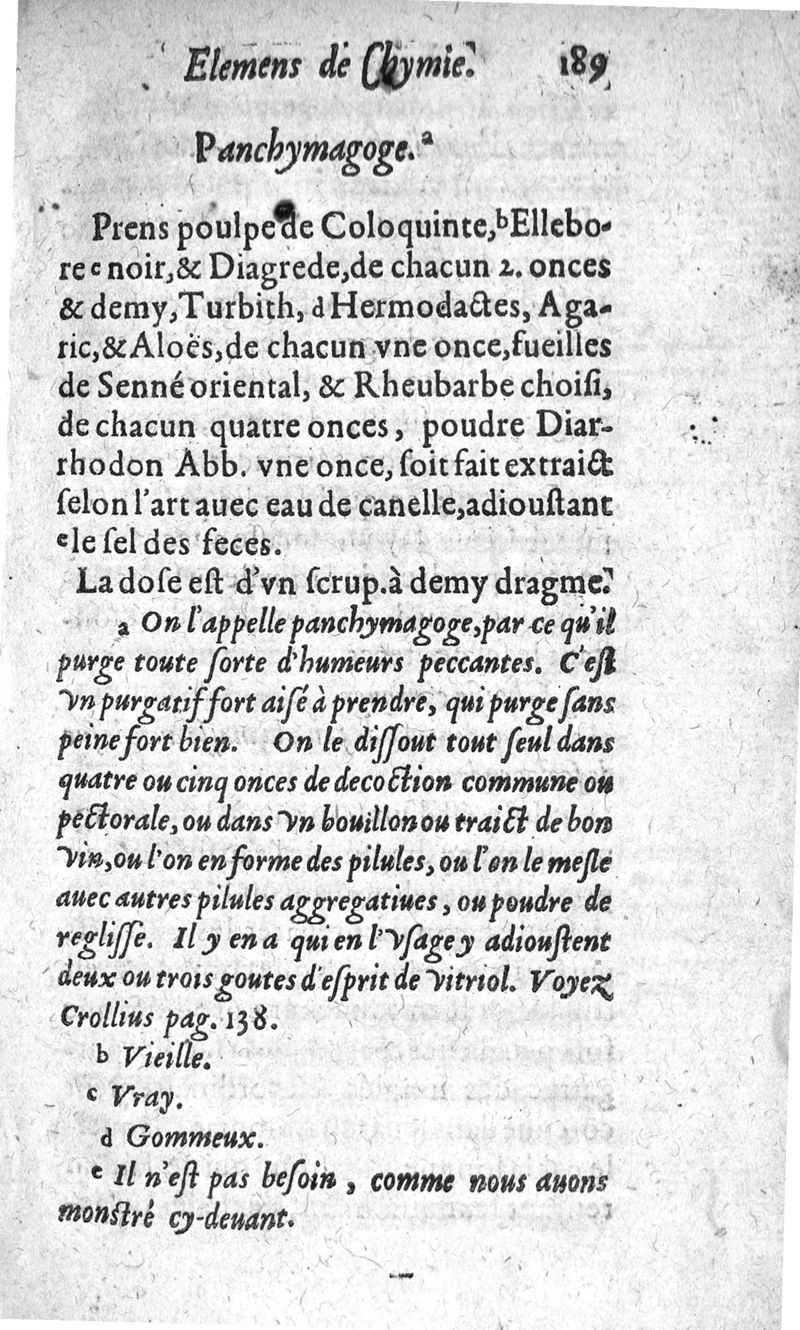 Elemens de Chymie. 189
Panchymagoge.ª
Prens poulpe de Coloquinte,ᵇEllebo-
reᶜnoir,& Diagrede,de chacun 2. onces
& demy,Turbith, dHermodactes, Aga-
ric,&Aloës,de chacun vne once,fueilles
de Senné oriental, & Rheubarbe choiſi,
de chacun quatre onces, poudre Diar-
rhodon Abb. vne once, ſoit fait extraict
ſelon l'art auec eau de canelle,adiouſtant
ᵉle ſel des feces.
La doſe eſt d'vn ſcrup.à demy dragme.
a On l'appelle panchymagoge,par ce qu'il
purge toute ſorte d'humeurs peccantes. C'eſt
vn purgatif fort aiſé à prendre, qui purge ſans
peine fort bien. On le diſſout tout ſeul dans
quatre ou cinq onces de decoction commune ou
pectorale, ou dans vn bouillon ou traict de bon
vin,ou l'on en forme des pilules, ou l'on le meſle
auec autres pilules aggregatiues, ou poudre de
regliſſe. Il y en a qui en l'vſage y adiouſtent
deux ou trois goutes d'eſprit de vitriol. Voyez
Crollius pag. 138.
b Vieille.
c Vray.
d Gommeux.
e Il n'eſt pas beſoin, comme nous auons
monſtré cy-deuant.